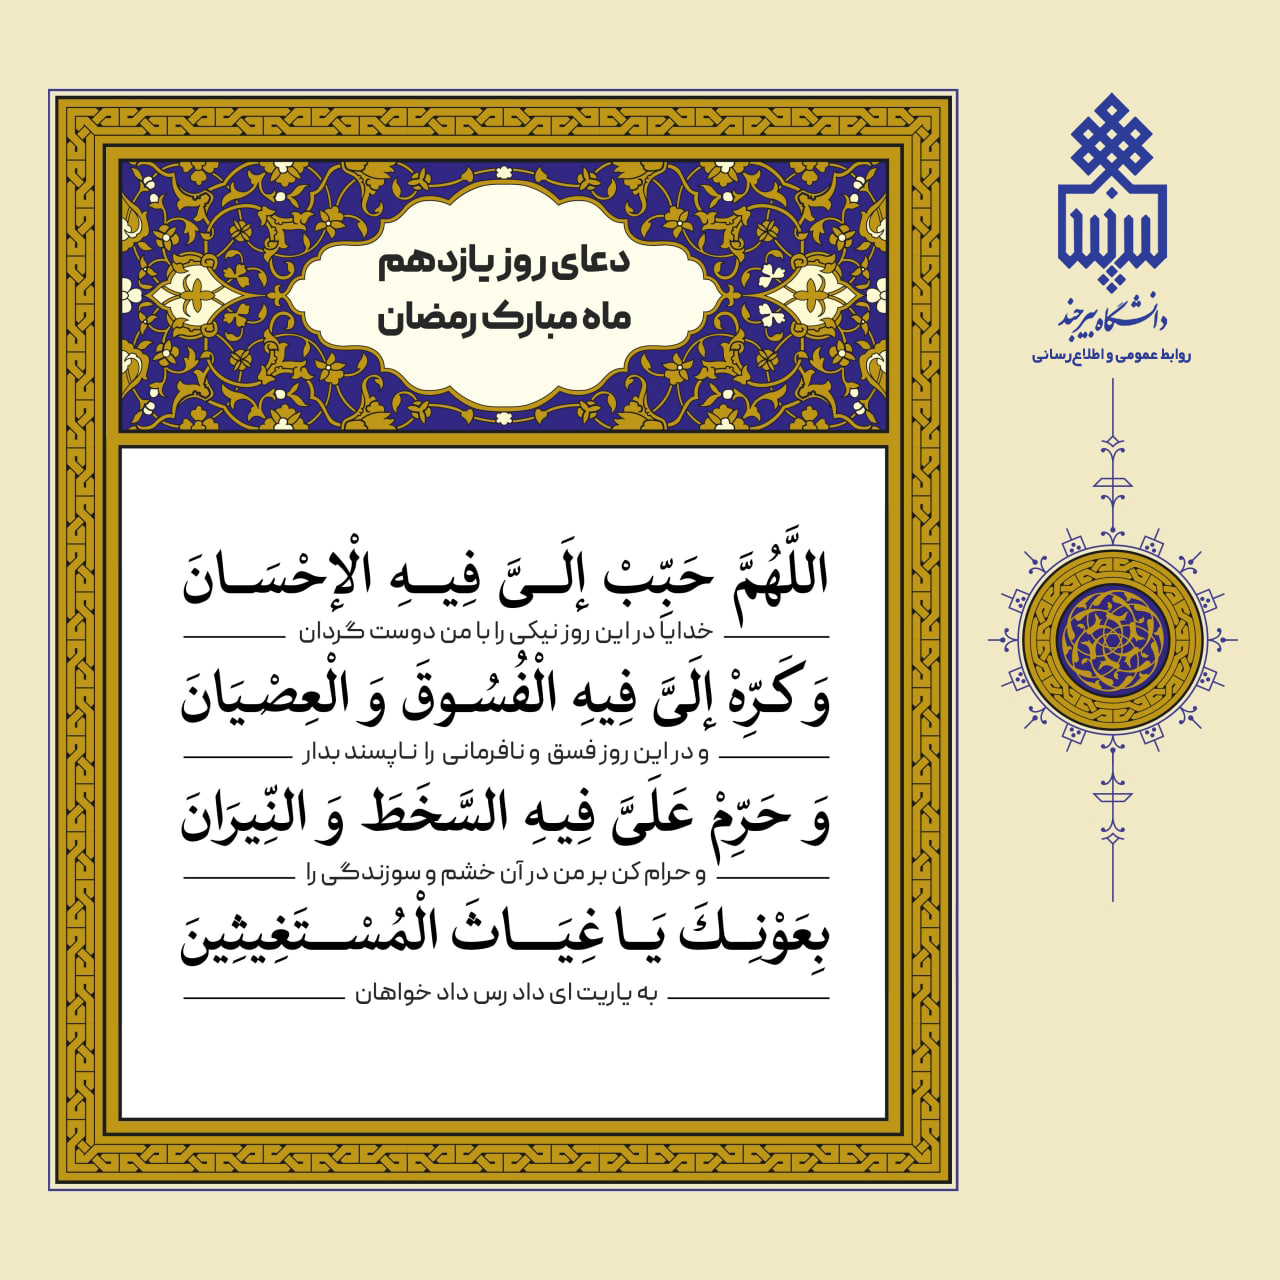 دعای روز یازدهم
ماه مبارک رمضان
اللَّهُمَّ حَبِّبْ إِلَىَّ فِيهِ الْإِحْسَانَ
خدایاً در این روز نیکی را با من دوست گردان
وَ كَرِّهْ إِلَىَّ فِيهِ الْفُسُوقَ وَ الْعِصْيَانَ
و در این روز فسق و نافرمانی را ناپسند بدار
وَ حَرِّمْ عَلَىَّ فِيهِ السَّخَطَ وَ النِّيرَانَ
و حرام کن بر من در آن خشم و سوزندگی را
بِعَوْنِكَ يَا غِيَاثَ الْمُسْتَغِيثِينَ
به یاریت ای داد رس داد خواهان
بیرجند
دانشگاه بیرجند
روابط عمومی و اطلاع‌رسانی